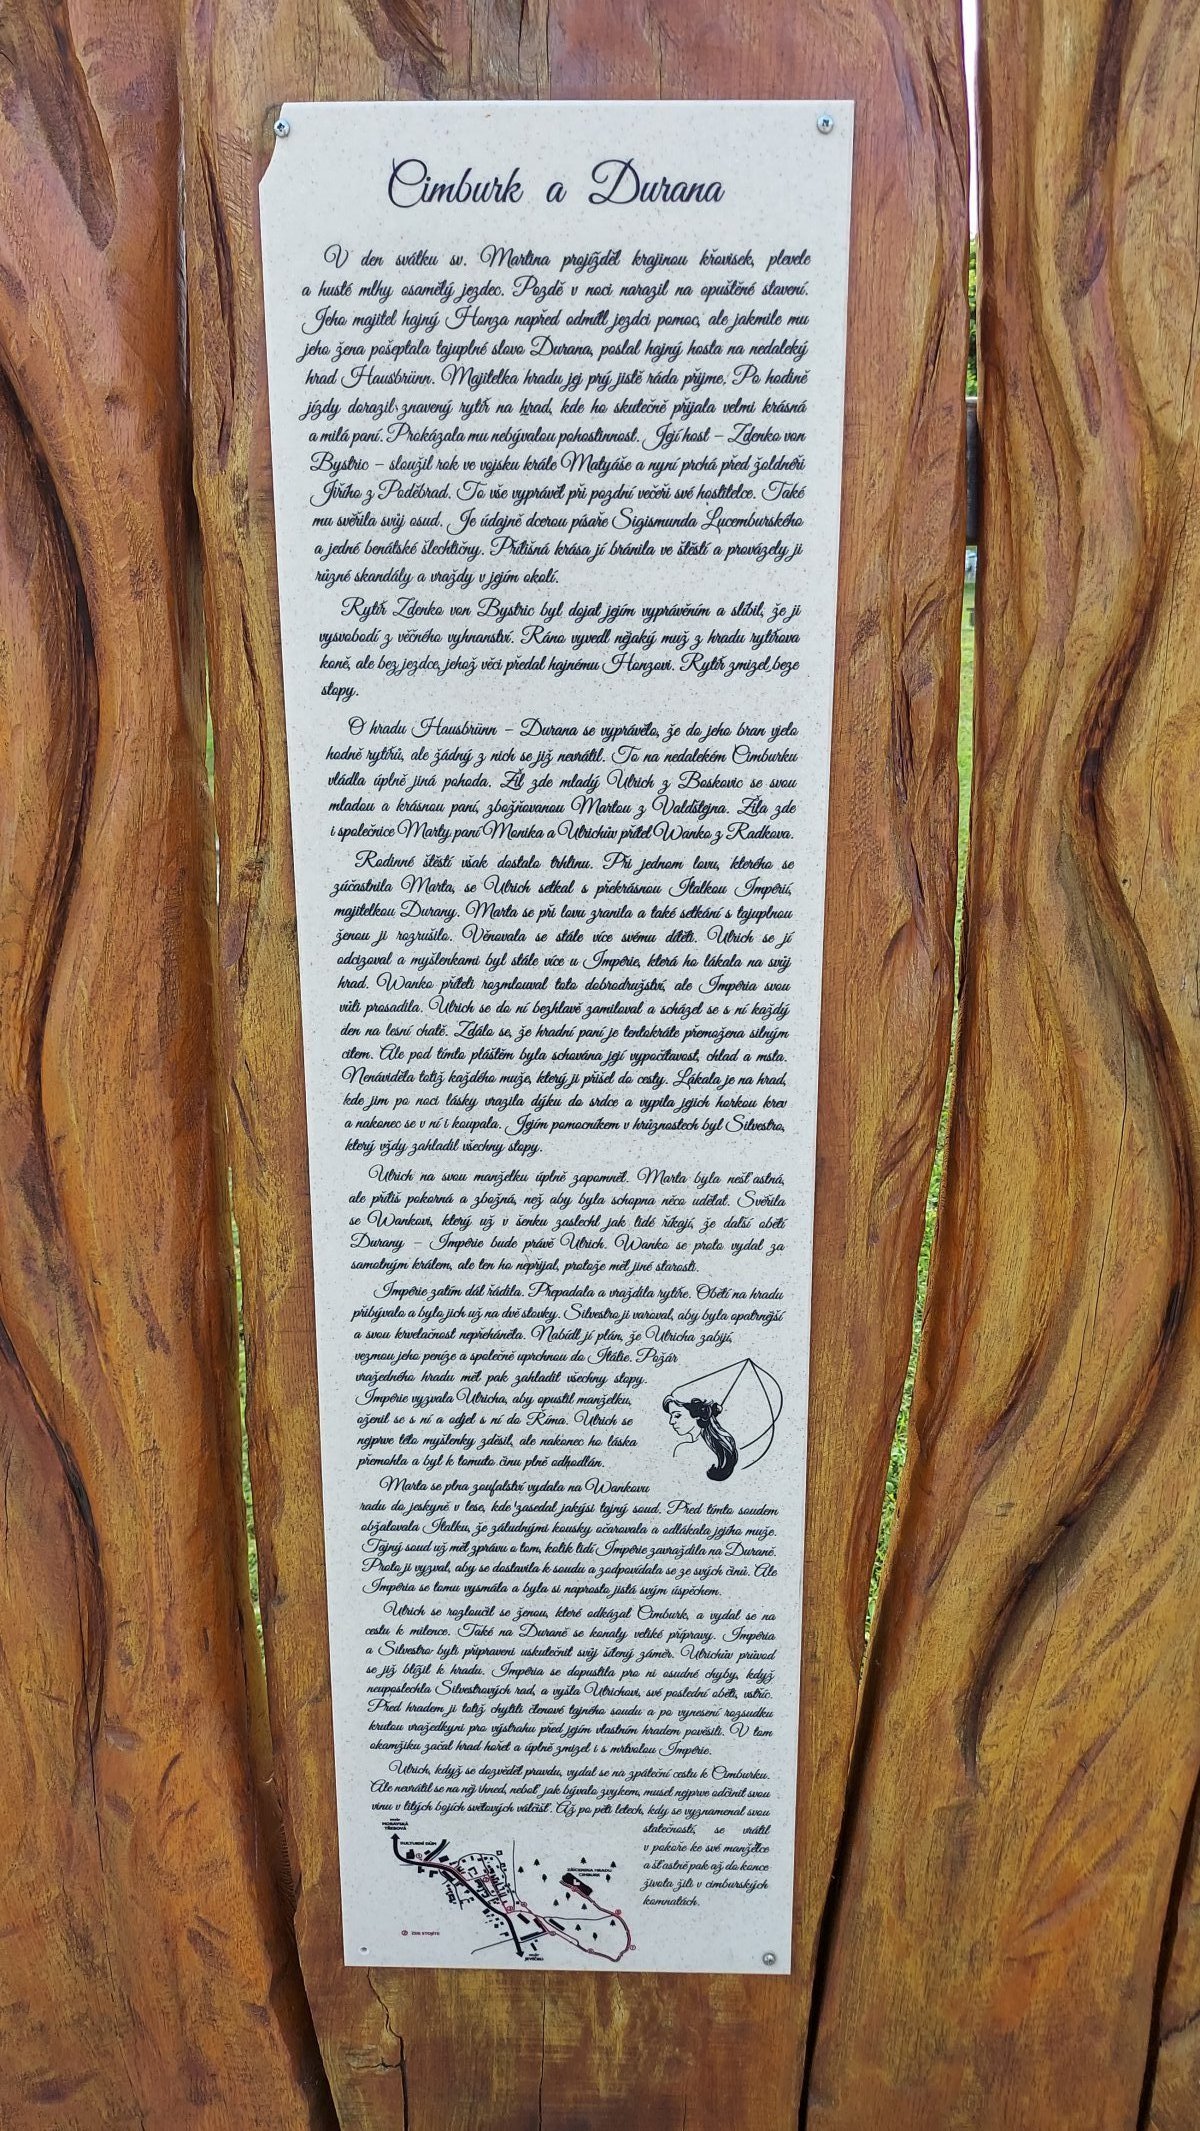 Cimburk a Durana
V den svátku sv. Martina projížděl krajinou křovisek, plevele
a husté mlhy osamělý jezdec. Pozdě v noci narazil na opuštěné stavení.
Jeho majitel hajný Honza napřed odmítl jezdci pomoc, ale jakmile mu
jeho žena pošeptala tajuplné slovo Durana, poslal hajný hosta na nedaleký
hrad Hausbrünn. Majitelka hradu jej prý jistě ráda přijme. Po hodině
jízdy dorazil znavený rytíř na hrad, kde ho skutečně přijala velmi krásná
a milá paní. Prokázala mu nebývalou pohostinnost. Její host – Zdenko von
Bystric – sloužil rok ve vojsku krále Matyáše a nyní prchá před žoldnéři
Jiřího z Poděbrad. To vše vyprávěl při pozdní večeři své hostitelce. Také
mu svěřila svůj osud. Je údajně dcerou písaře Sigismunda Lucemburského
a jedné benátské šlechtičny. Přílišná krása jí bránila ve štěstí a provázely ji
různé skandály a vraždy v jejím okolí.
Rytíř Zdenko von Bystric byl dojat jejím vyprávěním a slíbil, že ji
vysvobodí z věčného vyhnanství. Ráno vyvedl nějaký muž z hradu rytířova
koně, ale bez jezdce, jehož věci předal hajnému Honzovi. Rytíř zmizel beze
stopy.
O hradu Hausbrünn – Durana se vyprávělo, že do jeho bran vjelo
hodně rytířů, ale žádný z nich se již nevrátil. To na nedalekém Cimburku
vládla úplně jiná pohoda. Žil zde mladý Ulrich z Boskovic se svou
mladou a krásnou paní, zbožňovanou Martou z Valdštejna. Žila zde
i společnice Marty paní Monika a Ulrichův přítel Wanko z Radkova.
Rodinné štěstí však dostalo trhlinu. Při jednom lovu, kterého se
zúčastnila Marta, se Ulrich setkal s překrásnou Italkou Impérií,
majitelkou Durany. Marta se při lovu zranila a také setkání s tajuplnou
ženou ji rozrušilo. Věnovala se stále více svému dítěti. Ulrich se jí
odcizoval a myšlenkami byl stále více u Impérie, která ho lákala na svůj
hrad. Wanko příteli rozmlouval toto dobrodružství, ale Impéria svou
vůli prosadila. Ulrich se do ní bezhlavě zamiloval a scházel se s ní každý
den na lesní chatě. Zdálo se, že hradní paní je tentokráte přemožena silným
citem. Ale pod tímto pláštěm byla schována její vypočítavost, chlad a msta.
Nenáviděla totiž každého muže, který ji přišel do cesty. Lákala je na hrad,
kde jim po noci lásky vrazila dýku do srdce a vypila jejich horkou krev
a nakonec se v ní i koupala. Jejím pomocníkem v hrůznostech byl Silvestro,
který vždy zahladil všechny stopy.
Ulrich na svou manželku úplně zapomněl. Marta byla nešťastná,
ale příliš pokorná a zbožná, než aby byla schopna něco udělat. Svěřila
se Wankovi, který už v šenku zaslechl jak lidé říkají, že další obětí
Durany – Impérie bude právě Ulrich. Wanko se proto vydal za
samotným králem, ale ten ho nepřijal, protože měl jiné starosti.
Impérie zatím dál řádila. Přepadala a vraždila rytíře. Obětí na hradu
přibývalo a bylo jich už na dvě stovky. Silvestro ji varoval, aby byla opatrnější
a svou krvelačnost nepřeháněla. Nabídl jí plán, že Ulricha zabijí,
vezmou jeho peníze a společně uprchnou do Itálie. Požár
vražedného hradu měl pak zahladit všechny stopy.
Impérie vyzvala Ulricha, aby opustil manželku,
oženil se s ní a odjel s ní do Říma. Ulrich se
nejprve této myšlenky zděsil, ale nakonec ho láska
přemohla a byl k tomuto činu plně odhodlán.
Marta se plna zoufalství vydala na Wankovu
radu do jeskyně v lese, kde zasedal jakýsi tajný soud. Před tímto soudem
obžalovala Italku, že záludnými kousky očarovala a odlákala jejího muže.
Tajný soud už měl zprávu o tom, kolik lidí Impérie zavraždila na Duraně.
Proto ji vyzval, aby se dostavila k soudu a zodpovídala se ze svých činů. Ale
Impéria se tomu vysmála a byla si naprosto jistá svým úspěchem.
Ulrich se rozloučil se ženou, které odkázal Cimburk, a vydal se na
cestu k milence. Také na Duraně se konaly veliké přípravy. Impéria
a Silvestro byli připraveni uskutečnit svůj šílený záměr. Ulrichův průvod
se již blížil k hradu. Impéria se dopustila pro ni osudné chyby, když
neuposlechla Silvestrových rad, a vyšla Ulrichovi, své poslední oběti, vstříc.
Před hradem ji totiž chytili členové tajného soudu a po vynesení rozsudku
krutou vražedkyni pro výstrahu před jejím vlastním hradem pověsili. V tom
okamžiku začal hrad hořet a úplně zmizel i s mrtvolou Impérie.
Ulrich, když se dozvěděl pravdu, vydal se na zpáteční cestu k Cimburku.
Ale nevrátil se na něj ihned, neboť jak bývalo zvykem, musel nejprve odčinit svou
vinu v litých bojích světových válčišť. Až po pěti letech, kdy se vyznamenal svou
statečností, se vrátil
v pokoře ke své manželce
a šťastně pak až do konce
života žili v cimburských
komnatách.
MORAVSKÁ
TŘEBOVÁ
KULTURNÍ DŮM
ZŘÍCENINA HRADU
CIMBURK
ZDE STOJÍTE
JEVÍČKO